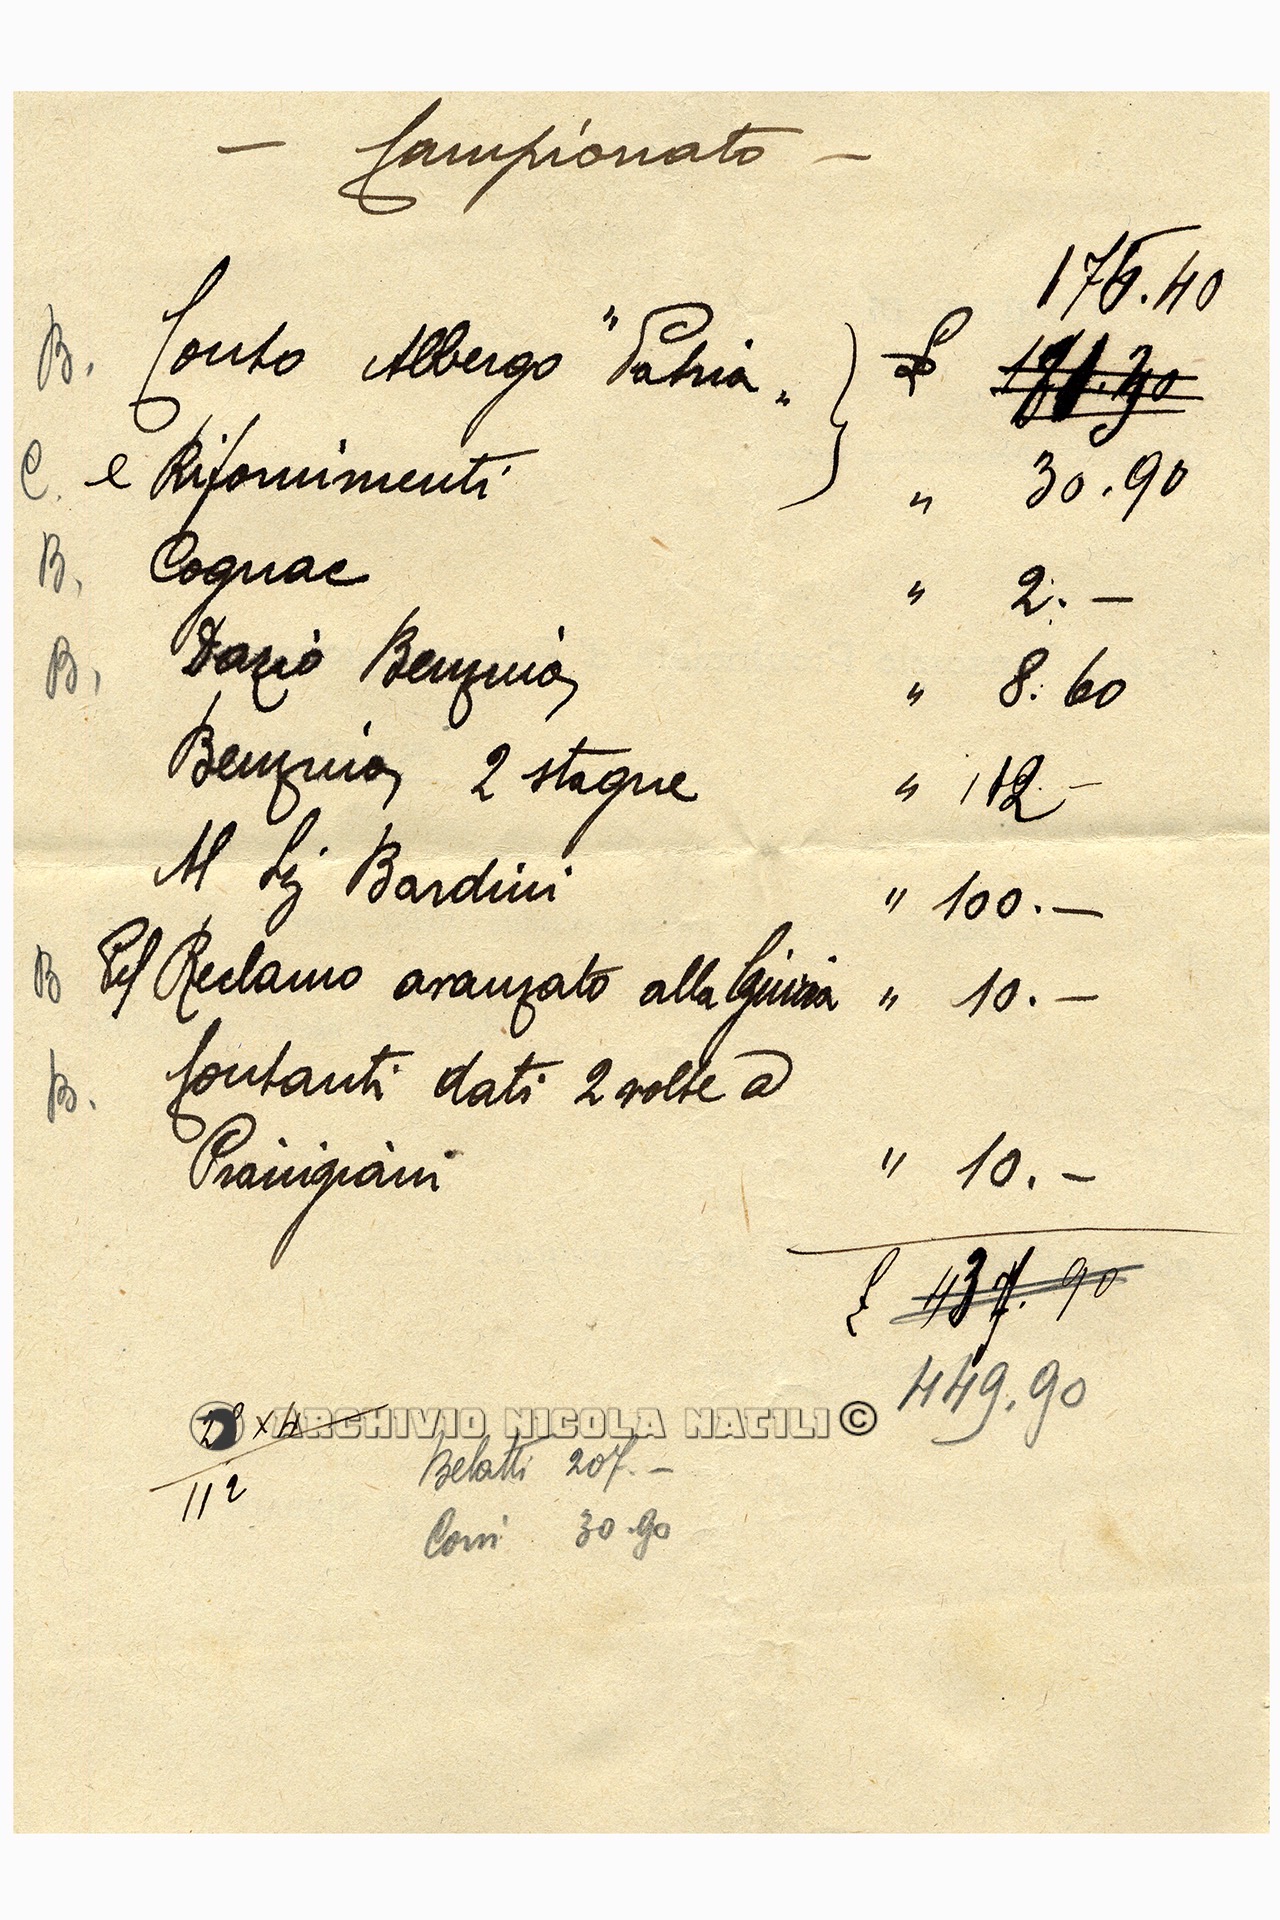 — Campionato —
176.40
B. Conto Albergo "Patria„ £
C. e Rifornimenti „ 30.90
B. Cognac „ 2.—
B. Dazio Benzina „ 8.60
Benzina 2 stagne „ 112.—
Al Sig Bardini „ 100.—
B Pel Reclamo avanzato alla Giuria „ 10.—
B. Contanti dati 2 volte a
„ 10.—
£ 437.90
449.90
28 x 4
ARCHIVIO NICOLA NATILI ©
112
Belatti 207.—
Corsi 30.90